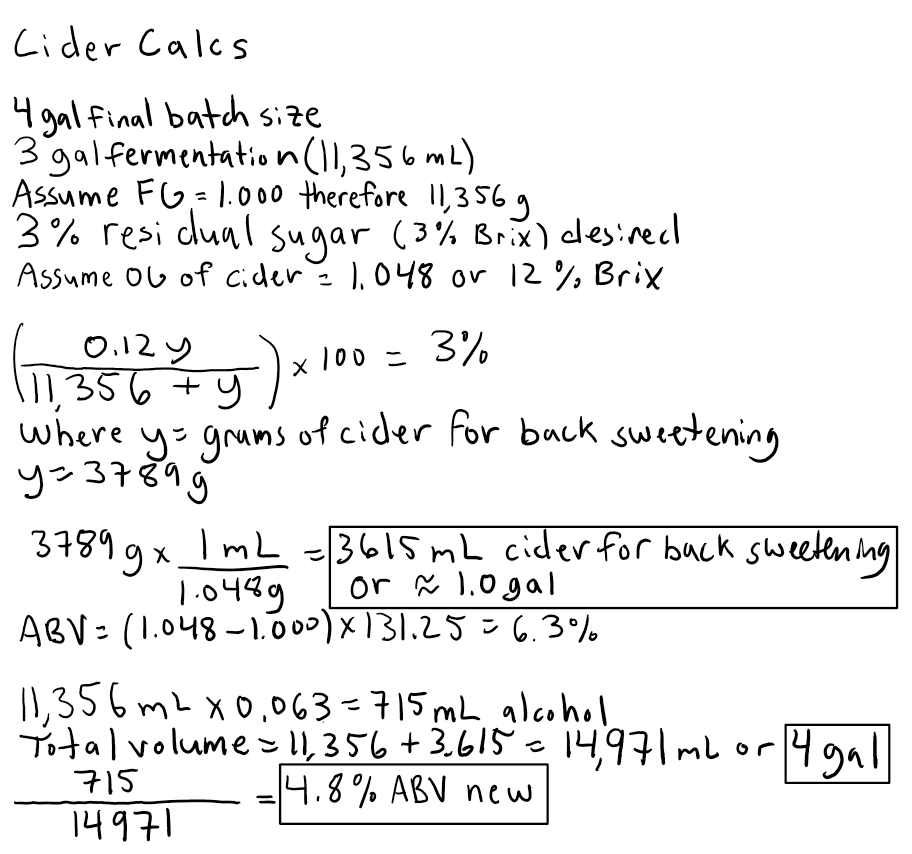 Cider Calcs
4 gal final batch size
3 gal fermentation (11,356 mL)
Assume FG = 1.000 therefore 11,356 g
3% residual sugar (3% Brix) desired
Assume OG of cider = 1.048 or 12% Brix
(0.12 y / 11,356 + y) × 100 = 3%
where y = grams of cider for back sweetening
y = 3789 g
3789 g × 1 mL / 1.048 g = 3615 mL cider for back sweetening
or ≈ 1.0 gal
ABV = (1.048 - 1.000) × 131.25 = 6.3%
11,356 mL × 0.063 = 715 mL alcohol
Total volume = 11,356 + 3,615 = 14,971 mL or 4 gal
715 / 14971 = 4.8% ABV new